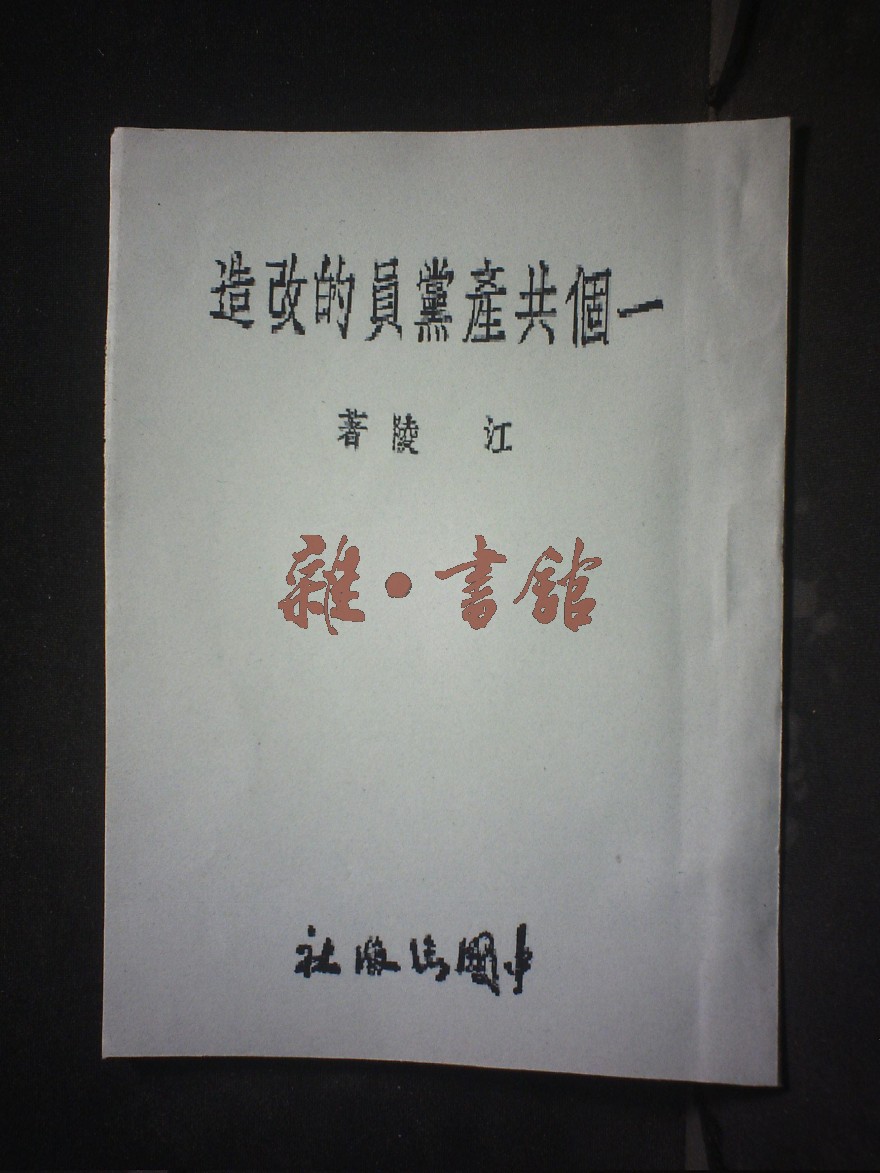 一個共產黨員的改造
江 陵著
雜·書館
中國出版社